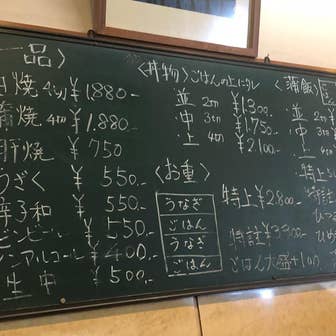 一品〉
白焼 4切 ¥1,880.-
蒲焼 4切 ¥1,880.-
肝焼 ¥750
うざく ¥550.-
辛子和 ¥550.-
ビンビール ¥550.-
ノンアルコール ¥400.-
生中 ¥500.-
〈丼物〉ごはんの上にタレ
・並 2切 ¥1,300.-
・中 3切 ¥1,750.-
・上 4切 ¥2,100.-
〈お重〉
うなぎ
ごはん
うなぎ
ごはん
特上 ¥2800.-
特註 ¥3300.-
ごはん大盛+100
〈蒲飯〉
・並 2切
・中 3切
・上 4切